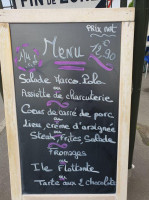 FIN DE
PRIX net
€
12,90
Menu
Midi
Salade Marco Polo
ou
Assiette de charcuterie
Cœur de carré de porc
ou
Lieu, crème d'araignée
ou
Steak, Frites, Salade
Fromages
ou
Ile Flottante
ou
Tarte aux 2 chocolats